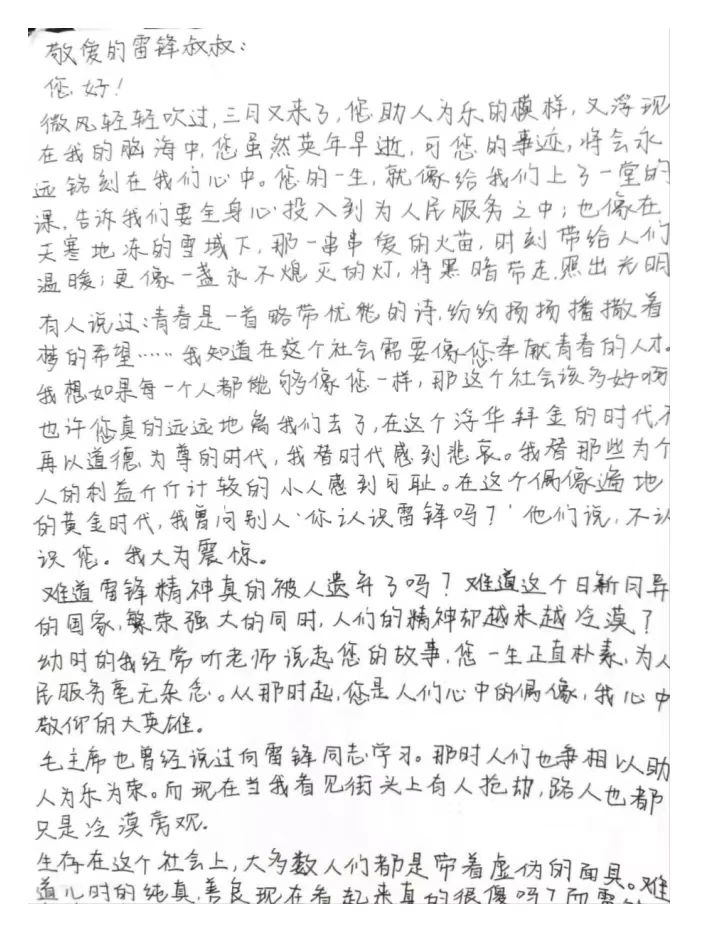 敬爱的雷锋叔叔：
您好！
微风轻轻吹过，三月又来了，您助人为乐的模样，又浮现
在我的脑海中，您虽然英年早逝，可您的事迹，将会永
远铭刻在我们心中。您的一生，就像给我们上了一堂的
课，告诉我们要全身心投入到为人民服务之中；也像在
天寒地冻的雪域下，那一串串爱的火苗，时刻带给人们
温暖；更像一盏永不熄灭的灯，将黑暗带走，照出光明
有人说过：青春是一首略带忧愁的诗，纷纷扬扬播撒着
梦的希望……我知道在这个社会需要像您奉献青春的人才。
我想如果每一个人都能够像您一样，那这个社会该多好啊
也许您真的远远地离我们去了，在这个浮华拜金的时代，不
再以道德为尊的时代，我替时代感到悲哀。我替那些为个
人的利益斤斤计较的小人感到可耻。在这个偶像遍地
的黄金时代，我曾问别人‘你认识雷锋吗？’他们说，不认
识您。我大为震惊。
难道雷锋精神真的被人遗弃了吗？难道这个日新月异
的国家，繁荣强大的同时，人们的精神却越来越冷漠？
幼时的我经常听老师说起您的故事，您一生正直朴素，为人
民服务毫无杂念。从那时起，您是人们心中的偶像，我心中
敬仰的大英雄。
毛主席也曾经说过向雷锋同志学习。那时人们也争相以助
人为乐为荣。而现在当我看见街头上有人抢劫，路人也都
只是冷漠旁观.
生存在这个社会上，大多数人们都是带着虚伪的面具。难
道儿时的纯真，善良现在看起来真的很傻吗？而雷